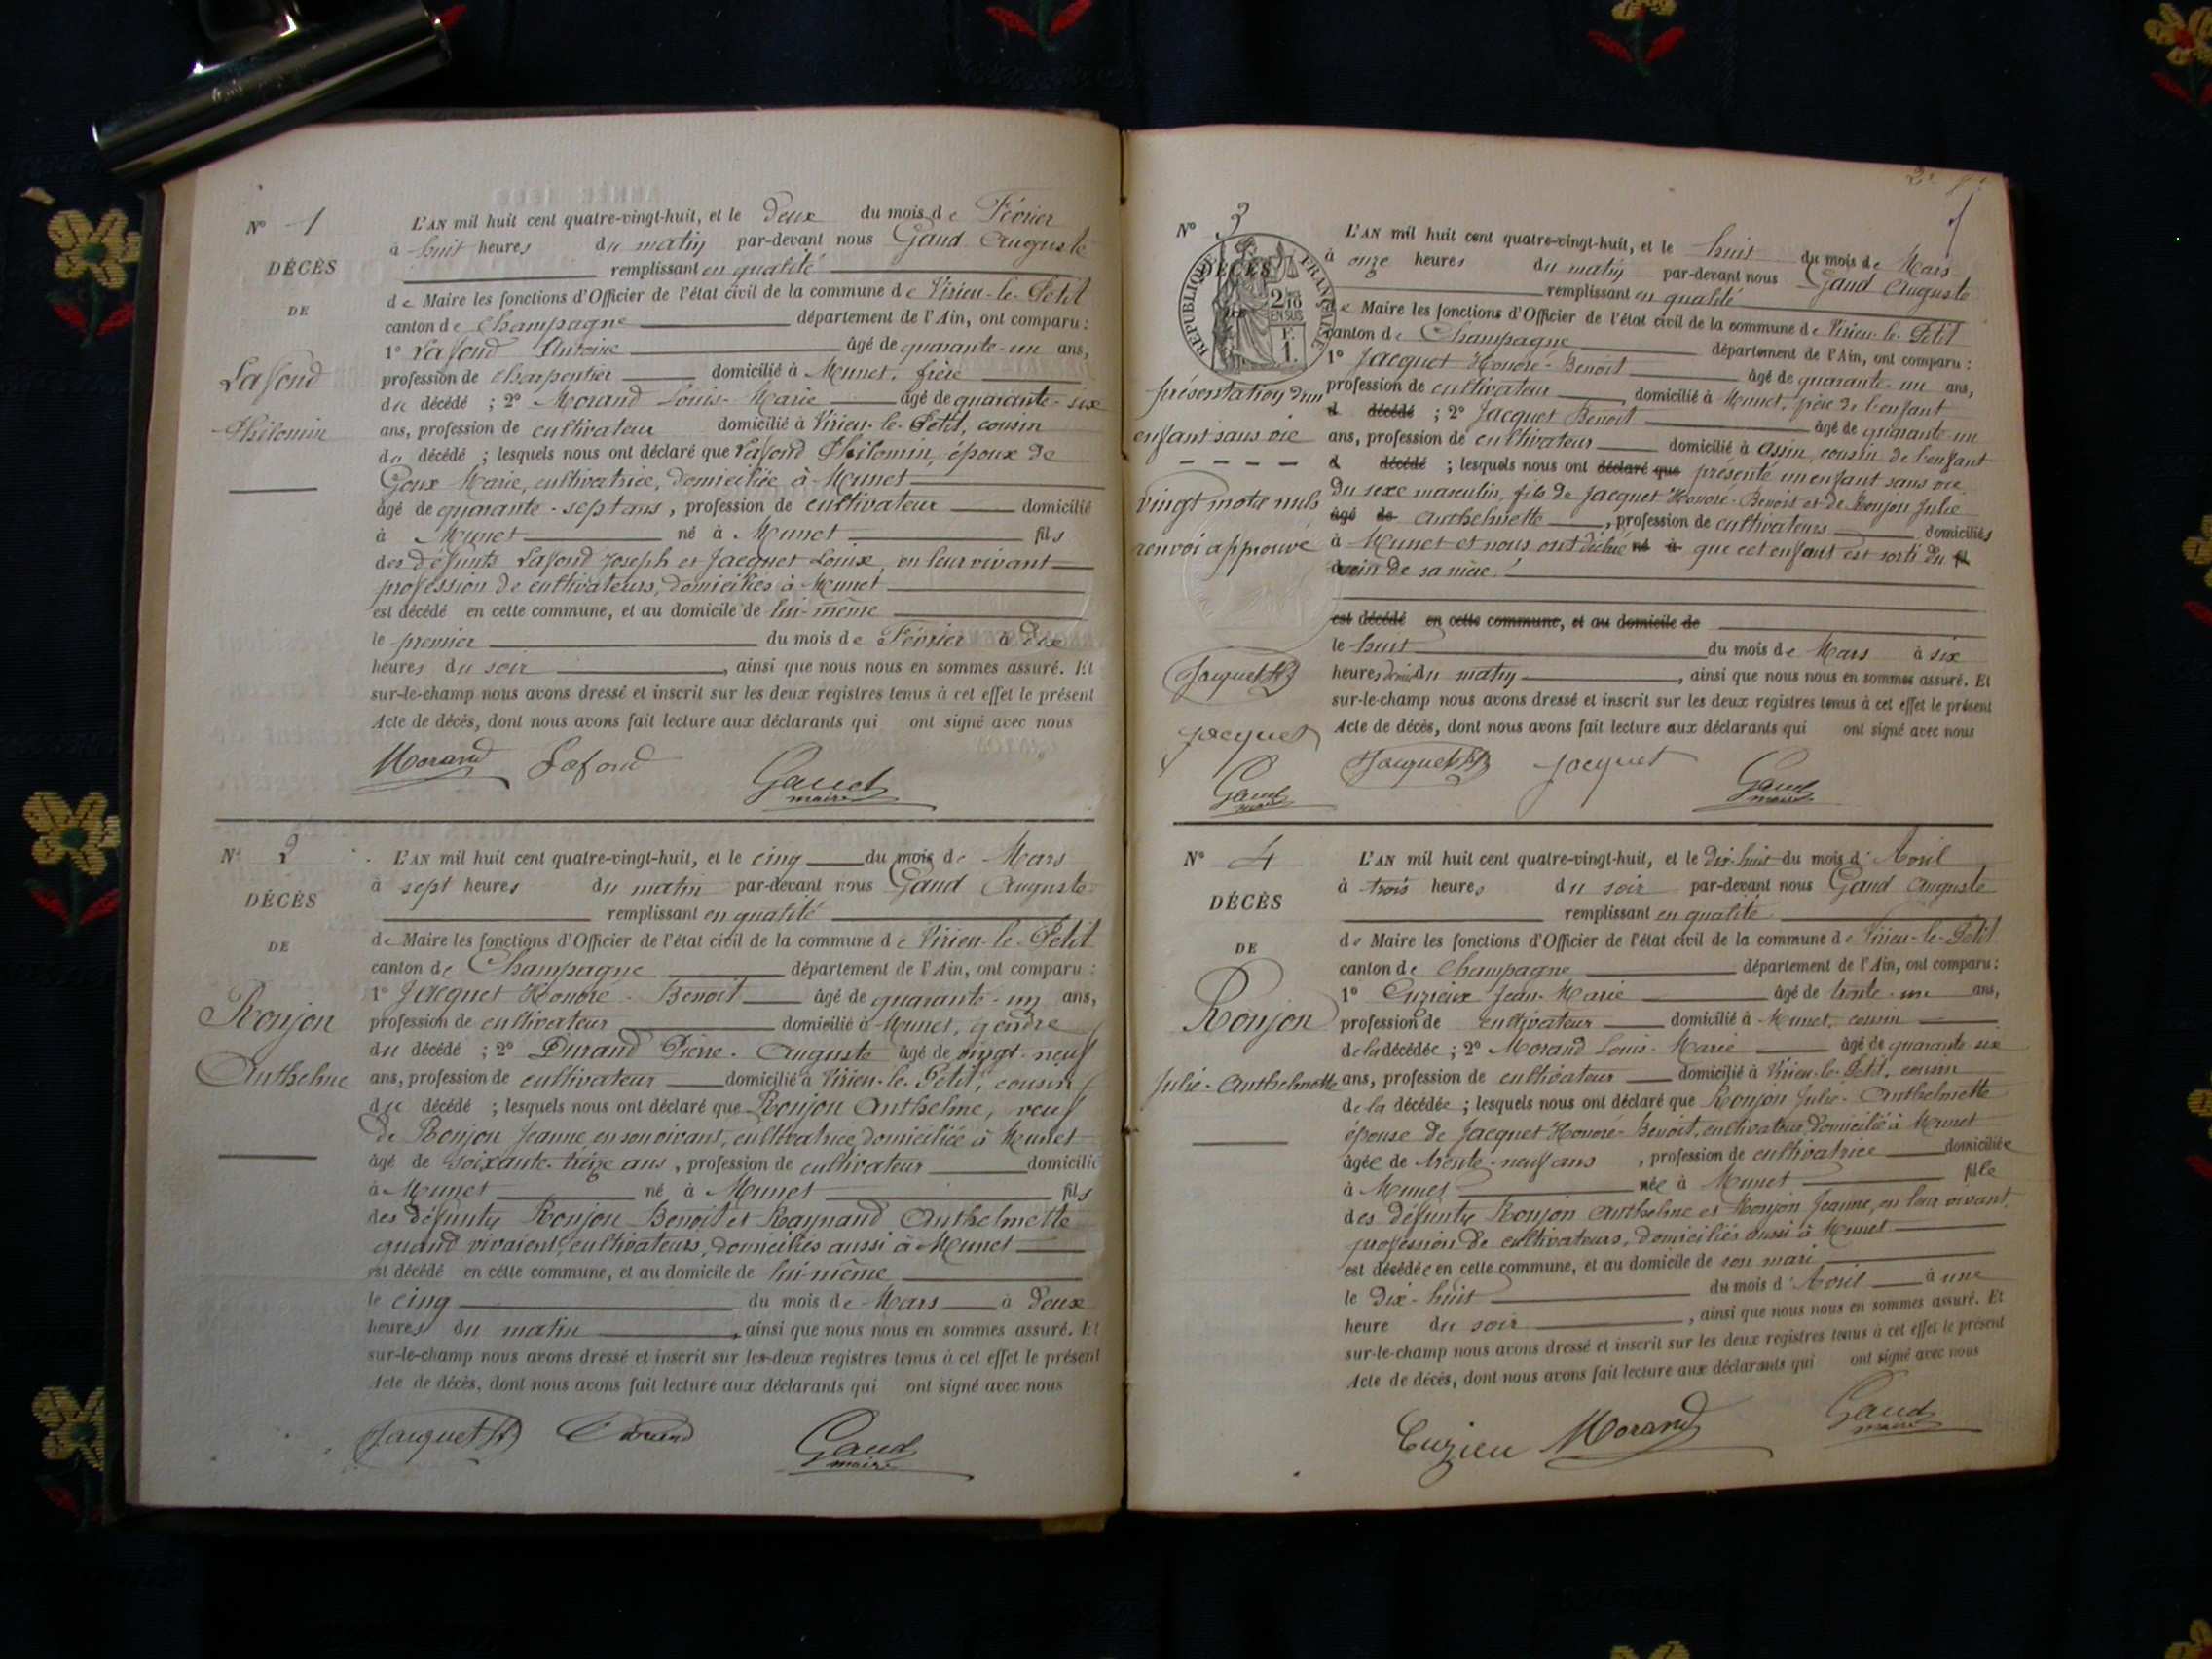 N° 1
DÉCÈS
DE
Lafond
Philomin
L'AN mil huit cent quatre-vingt-huit, et le deux du mois de Février
à huit heures du matin par-devant nous Gaud Auguste
remplissant en qualité
de Maire les fonctions d'Officier de l'état civil de la commune de Virieu-le-Petit
canton de Champagne département de l'Ain, ont comparu :
1° Lafond Antoine âgé de quarante-un ans,
profession de charpentier domicilié à Munet, frère
du décédé ; 2° Morand Louis-Marie âgé de quarante-six
ans, profession de cultivateur domicilié à Virieu-le-Petit, cousin
du décédé ; lesquels nous ont déclaré que Lafond Philomin, époux de
Goux Marie, cultivatrice, domiciliée à Munet
âgé de quarante-sept ans, profession de cultivateur domicilié
à Munet né à Munet fils
des défunts Lafond Joseph et Jacquet Louise, en leur vivant
profession de cultivateurs, domiciliés à Munet
est décédé en cette commune, et au domicile de lui-même
le premier du mois de Février à dix
heures du soir, ainsi que nous nous en sommes assuré. Et
sur-le-champ nous avons dressé et inscrit sur les deux registres tenus à cet effet le présent
Acte de décès, dont nous avons fait lecture aux déclarants qui ont signé avec nous
Morand Lafond Gaud
maire
N° 2
DÉCÈS
DE
Ronjon
Anthelme
L'AN mil huit cent quatre-vingt-huit, et le cinq du mois de Mars
à sept heures du matin par-devant nous Gaud Auguste
remplissant en qualité
de Maire les fonctions d'Officier de l'état civil de la commune de Virieu-le-Petit
canton de Champagne département de l'Ain, ont comparu :
1° Jacquet Honoré-Benoit âgé de quarante-un ans,
profession de cultivateur domicilié à Munet, gendre
du décédé ; 2° Durand Pierre-Auguste âgé de vingt-neuf
ans, profession de cultivateur domicilié à Virieu-le-Petit, cousin
du décédé ; lesquels nous ont déclaré que Ronjon Anthelme, veuf
de Ronjon Jeanne en son vivant, cultivatrice, domiciliée à Munet
âgé de soixante-treize ans, profession de cultivateur domicilié
à Munet né à Munet fils
des défunts Ronjon Benoit et Raynand Anthelmette
quand vivaient, cultivateurs, domiciliés aussi à Munet
est décédé en cette commune, et au domicile de lui-même
le cinq du mois de Mars à deux
heures du matin, ainsi que nous nous en sommes assuré. Et
sur-le-champ nous avons dressé et inscrit sur les deux registres tenus à cet effet le présent
Acte de décès, dont nous avons fait lecture aux déclarants qui ont signé avec nous
Jacquet HB Durand Gaud
maire
N° 3
DÉCÈS
RÉPUBLIQUE FRANÇAISE
2/10 EN SUS
F. 1.
présentation d'un
enfant sans vie
vingt mots nuls
renvoi approuvé
Jacquet HB
Jacquet
Gaud
maire
L'AN mil huit cent quatre-vingt-huit, et le huit du mois de Mars
à onze heures du matin par-devant nous Gaud Auguste
remplissant en qualité
de Maire les fonctions d'Officier de l'état civil de la commune de Virieu-le-Petit
canton de Champagne département de l'Ain, ont comparu :
1° Jacquet Honoré-Benoit âgé de quarante-un ans,
profession de cultivateur, domicilié à Munet, père de l'enfant
d décédé ; 2° Jacquet Benoit âgé de quarante-un
ans, profession de cultivateur domicilié à Assin, cousin de l'enfant
d décédé ; lesquels nous ont déclaré que présenté un enfant sans vie
du sexe masculin, fils de Jacquet Honoré-Benoit et de Ronjon Julie
âgé de Anthelmette, profession de cultivateurs domiciliés
à Munet et nous ont déclaré né à que cet enfant est sorti du fil
sein de sa mère.
est décédé en cette commune, et au domicile de
le huit du mois de Mars à six
heures demi du matin, ainsi que nous nous en sommes assuré. Et
sur-le-champ nous avons dressé et inscrit sur les deux registres tenus à cet effet le présent
Acte de décès, dont nous avons fait lecture aux déclarants qui ont signé avec nous
Jacquet HB Jacquet Gaud
maire
N° 4
DÉCÈS
DE
Ronjon
Julie-Anthelmette
L'AN mil huit cent quatre-vingt-huit, et le dix-huit du mois d'Avril
à trois heures du soir par-devant nous Gaud Auguste
remplissant en qualité
de Maire les fonctions d'Officier de l'état civil de la commune de Virieu-le-Petit
canton de Champagne département de l'Ain, ont comparu :
1° Cuzieux Jean-Marie âgé de trente-un ans,
profession de cultivateur domicilié à Munet, cousin
de la décédée ; 2° Morand Louis-Marie âgé de quarante-six
ans, profession de cultivateur domicilié à Virieu-le-Petit, cousin
de la décédée ; lesquels nous ont déclaré que Ronjon Julie-Anthelmette
épouse de Jacquet Honoré-Benoit, cultivateur, domicilié à Munet
âgée de trente-neuf ans, profession de cultivatrice domiciliée
à Munet née à Munet fille
des défunts Ronjon Anthelme et Ronjon Jeanne, en leur vivant,
profession de cultivateurs, domiciliés aussi à Munet
est décédée en cette commune, et au domicile de son mari
le dix-huit du mois d'Avril à une
heure du soir, ainsi que nous nous en sommes assuré. Et
sur-le-champ nous avons dressé et inscrit sur les deux registres tenus à cet effet le présent
Acte de décès, dont nous avons fait lecture aux déclarants qui ont signé avec nous
Cuzieu Morand Gaud
maire